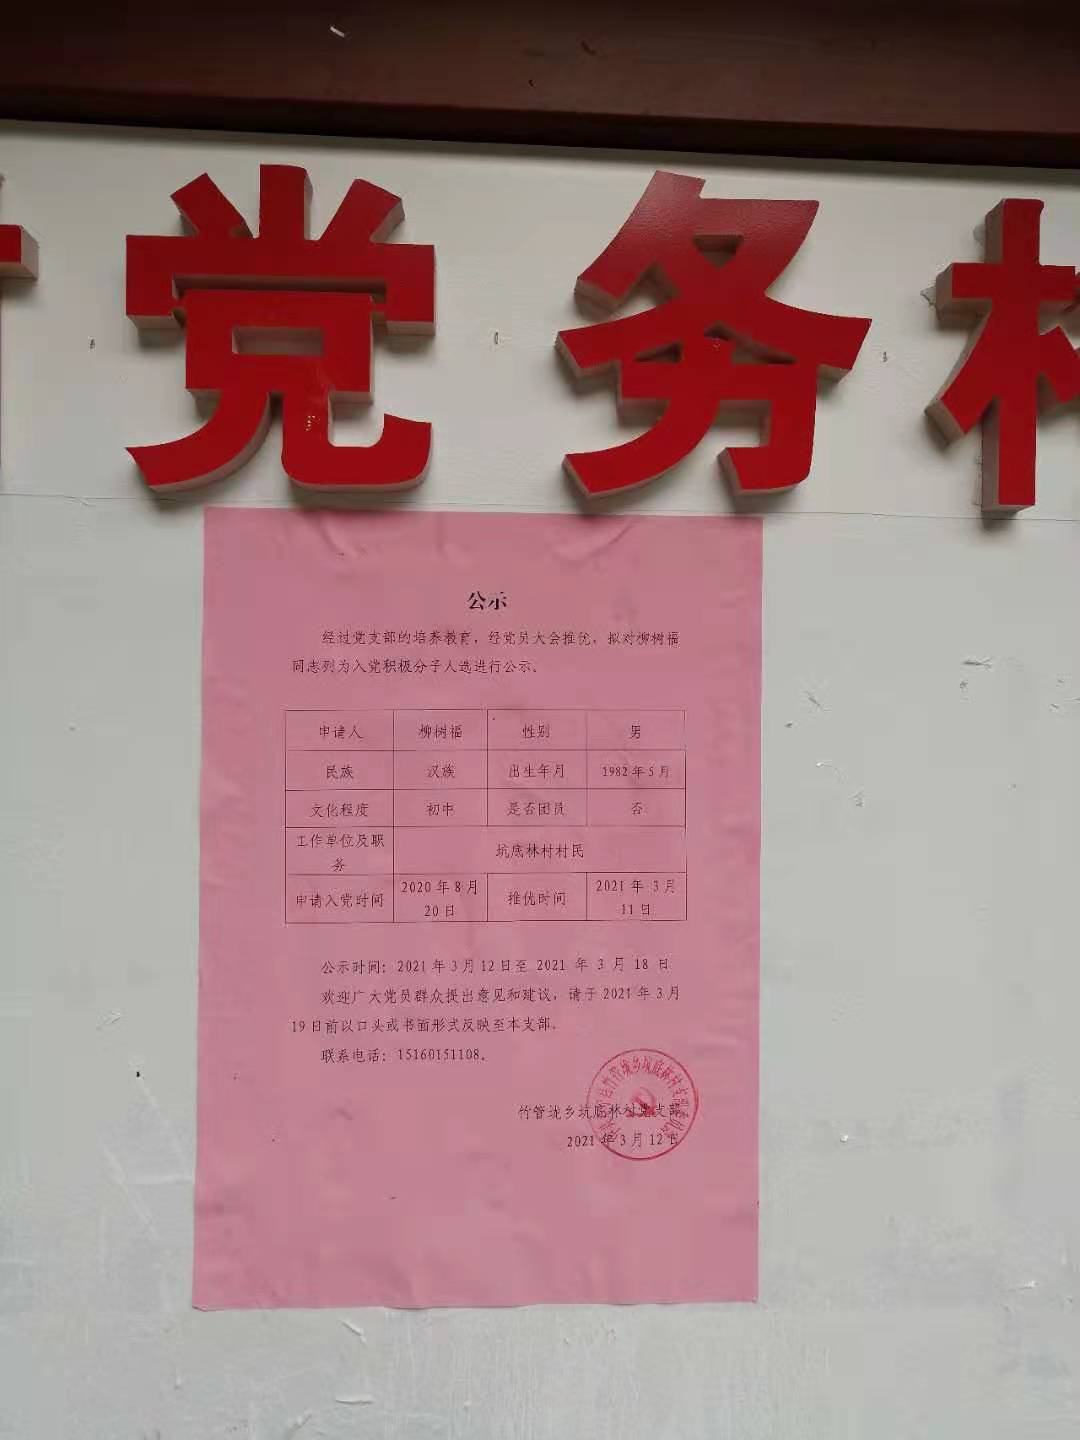 党务
公示
经过党支部的培养教育，经党员大会推优，拟对柳树福
同志列为入党积极分子人选进行公示。
申请人 柳树福 性别 男
民族 汉族 出生年月 1982年5月
文化程度 初中 是否团员 否
工作单位及职
务
坑底林村村民
申请入党时间 2020年8月
20日
推优时间 2021年 3月
11日
公示时间：2021年3月12日至 2021 年 3 月 18 日
欢迎广大党员群众提出意见和建议，请于2021年3月
19日前以口头或书面形式反映至本支部。
联系电话：15160151108。
竹管垅乡坑底林村党支部
2021年3月12日